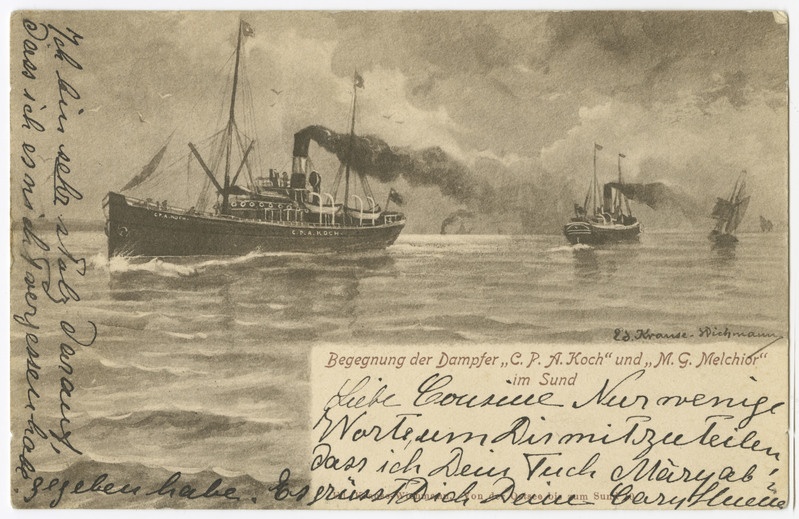 Ich bin sehr stolz darauf,
dass ich es nicht vergessen habe.
C.P.A. KOCH
C.P.A. KOCH
Ed. Krause-Wichmann
Begegnung der Dampfer „C. P. A. Koch“ und „M. G. Melchior“
im Sund
Liebe Cousine Nur wenige
Worte, um Dir mitzuteilen,
dass ich Dein Tuch Märy ab
gegeben habe. Es grüsst Dich Deine Cary
Von der Ostsee bis zum Sund